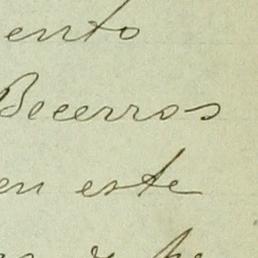 ento
Becerros
en este